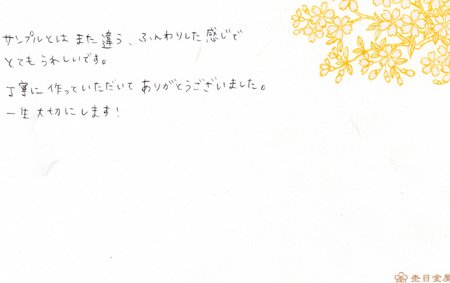 サンプルとは また 違う、ふんわりした 感じで
とても うれしいです。
丁寧に 作っていただいて ありがとうございました。
一生 大切にします！
杢目金屋